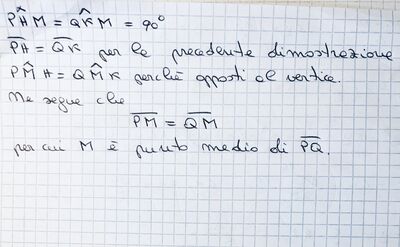 PĤM = QK̂M = 90°
P̅H̅ = Q̅K̅ per la precedente dimostrazione
PM̂H = QM̂K perché opposti al vertice.
Ne segue che
P̅M̅ = Q̅M̅
per cui M è punto medio di P̅Q̅.